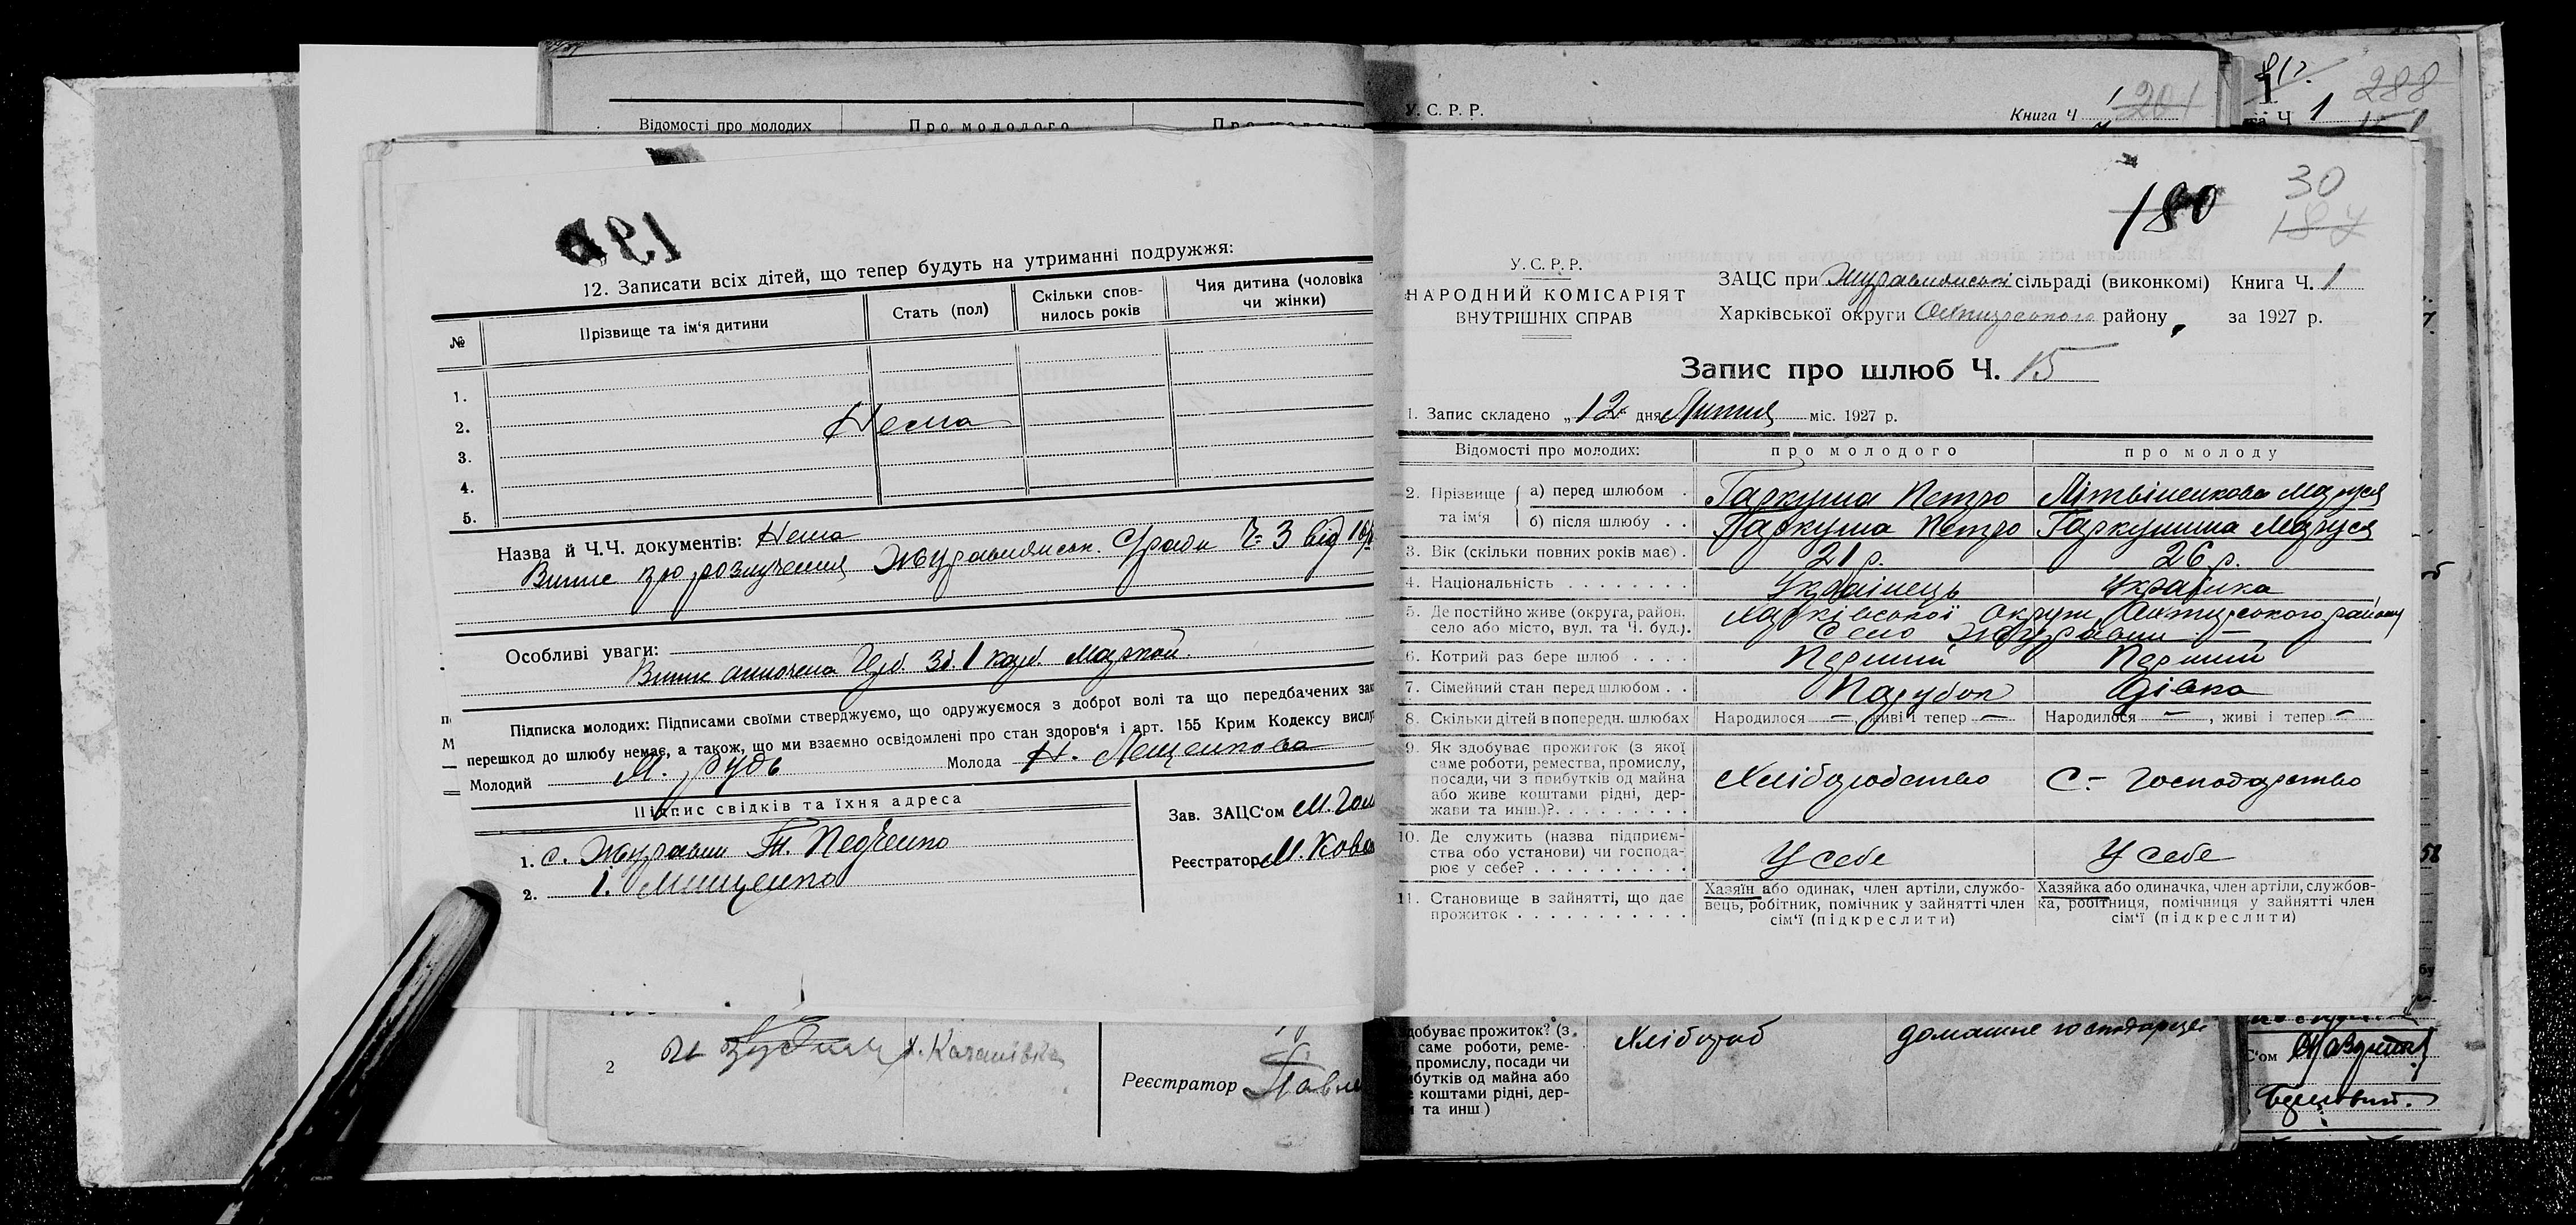 Відомості про молодих
Про молодого
У. С. Р. Р.
Книга Ч 1
201
288
Ч 1
12. Записати всіх дітей, що тепер будуть на утриманні подружжя:
№
Прізвище та ім‘я дитини
Стать (пол)
Скільки спов-
нилось років
Чия дитина (чоловіка
чи жінки)
1.
2.
Нема
3.
4.
5.
Назва й Ч.Ч. документів: Нема
Журавлянськ. Ч- 3 від
Особливі уваги:
1 карб. маркой.
Підписка молодих: Підписами своїми стверджуємо, що одружуємося з доброї волі та що передбачених
перешкод до шлюбу немає, а також, що ми взаємно освідомлені про стан здоров‘я і арт. 155 Крим Кодексу
Молодий М. Рудь Молода Н. Лещенкова
Підпис свідків та їхня адреса
1. с. Журавни Педченко
2. І. Мищенко
Зав. ЗАЦС‘ом М.
Реєстратор М.
2
х. Качанівка
Реєстратор
180
30
187
У. С. Р. Р.
НАРОДНИЙ КОМІСАРІЯТ
ВНУТРІШНІХ СПРАВ
ЗАЦС при Журавлянській сільраді (виконкомі) Книга Ч. 1
Харківської округи Охтирського району за 1927 р.
Запис про шлюб Ч. 15
1. Запис складено „12“ дня Лютня міс. 1927 р.
Відомості про молодих:
про молодого
про молоду
2. Прізвище та ім‘я
а) перед шлюбом
Гаркуша Петро
Літвіненкова Маруся
б) після шлюбу
Гаркуша Петро
Гаркушина Маруся
3. Вік (скільки повних років має)
21 р.
26 р.
4. Національність
Українець
Українка
5. Де постійно живе (округа, район,
село або місто, вул. та Ч. буд.).
Харківської округи, Охтирського району
Село Журавни —
6. Котрий раз бере шлюб
Перший
Перший
7. Сімейний стан перед шлюбом
Парубок
Дівка
8. Скільки дітей в попередн. шлюбах
Народилося — живі і тепер —
Народилося —, живі і тепер —
9. Як здобуває прожиток (з якої
саме роботи, ремества, промислу,
посади, чи з прибутків од майна
або живе коштами рідні, дер-
жави та инш.)?
Хліборобство
С.- Господарство
10. Де служить (назва підприєм-
ства обо установи) чи господа-
рює у себе?
У себе
У себе
11. Становище в зайнятті, що дає
прожиток
Хазяїн або одинак, член артіли, службо-
вець, робітник, помічник у зайнятті член
сім‘ї (підкреслити)
Хазяйка або одиначка, член артіли, службов-
ка, робітниця, помічниця у зайнятті член
сім‘ї (підкреслити)
добуває прожиток? (з
саме роботи, реме-
промислу, посади чи
бутків од майна або
коштами рідні, дер-
та инш)
Хлібороб
домашнє